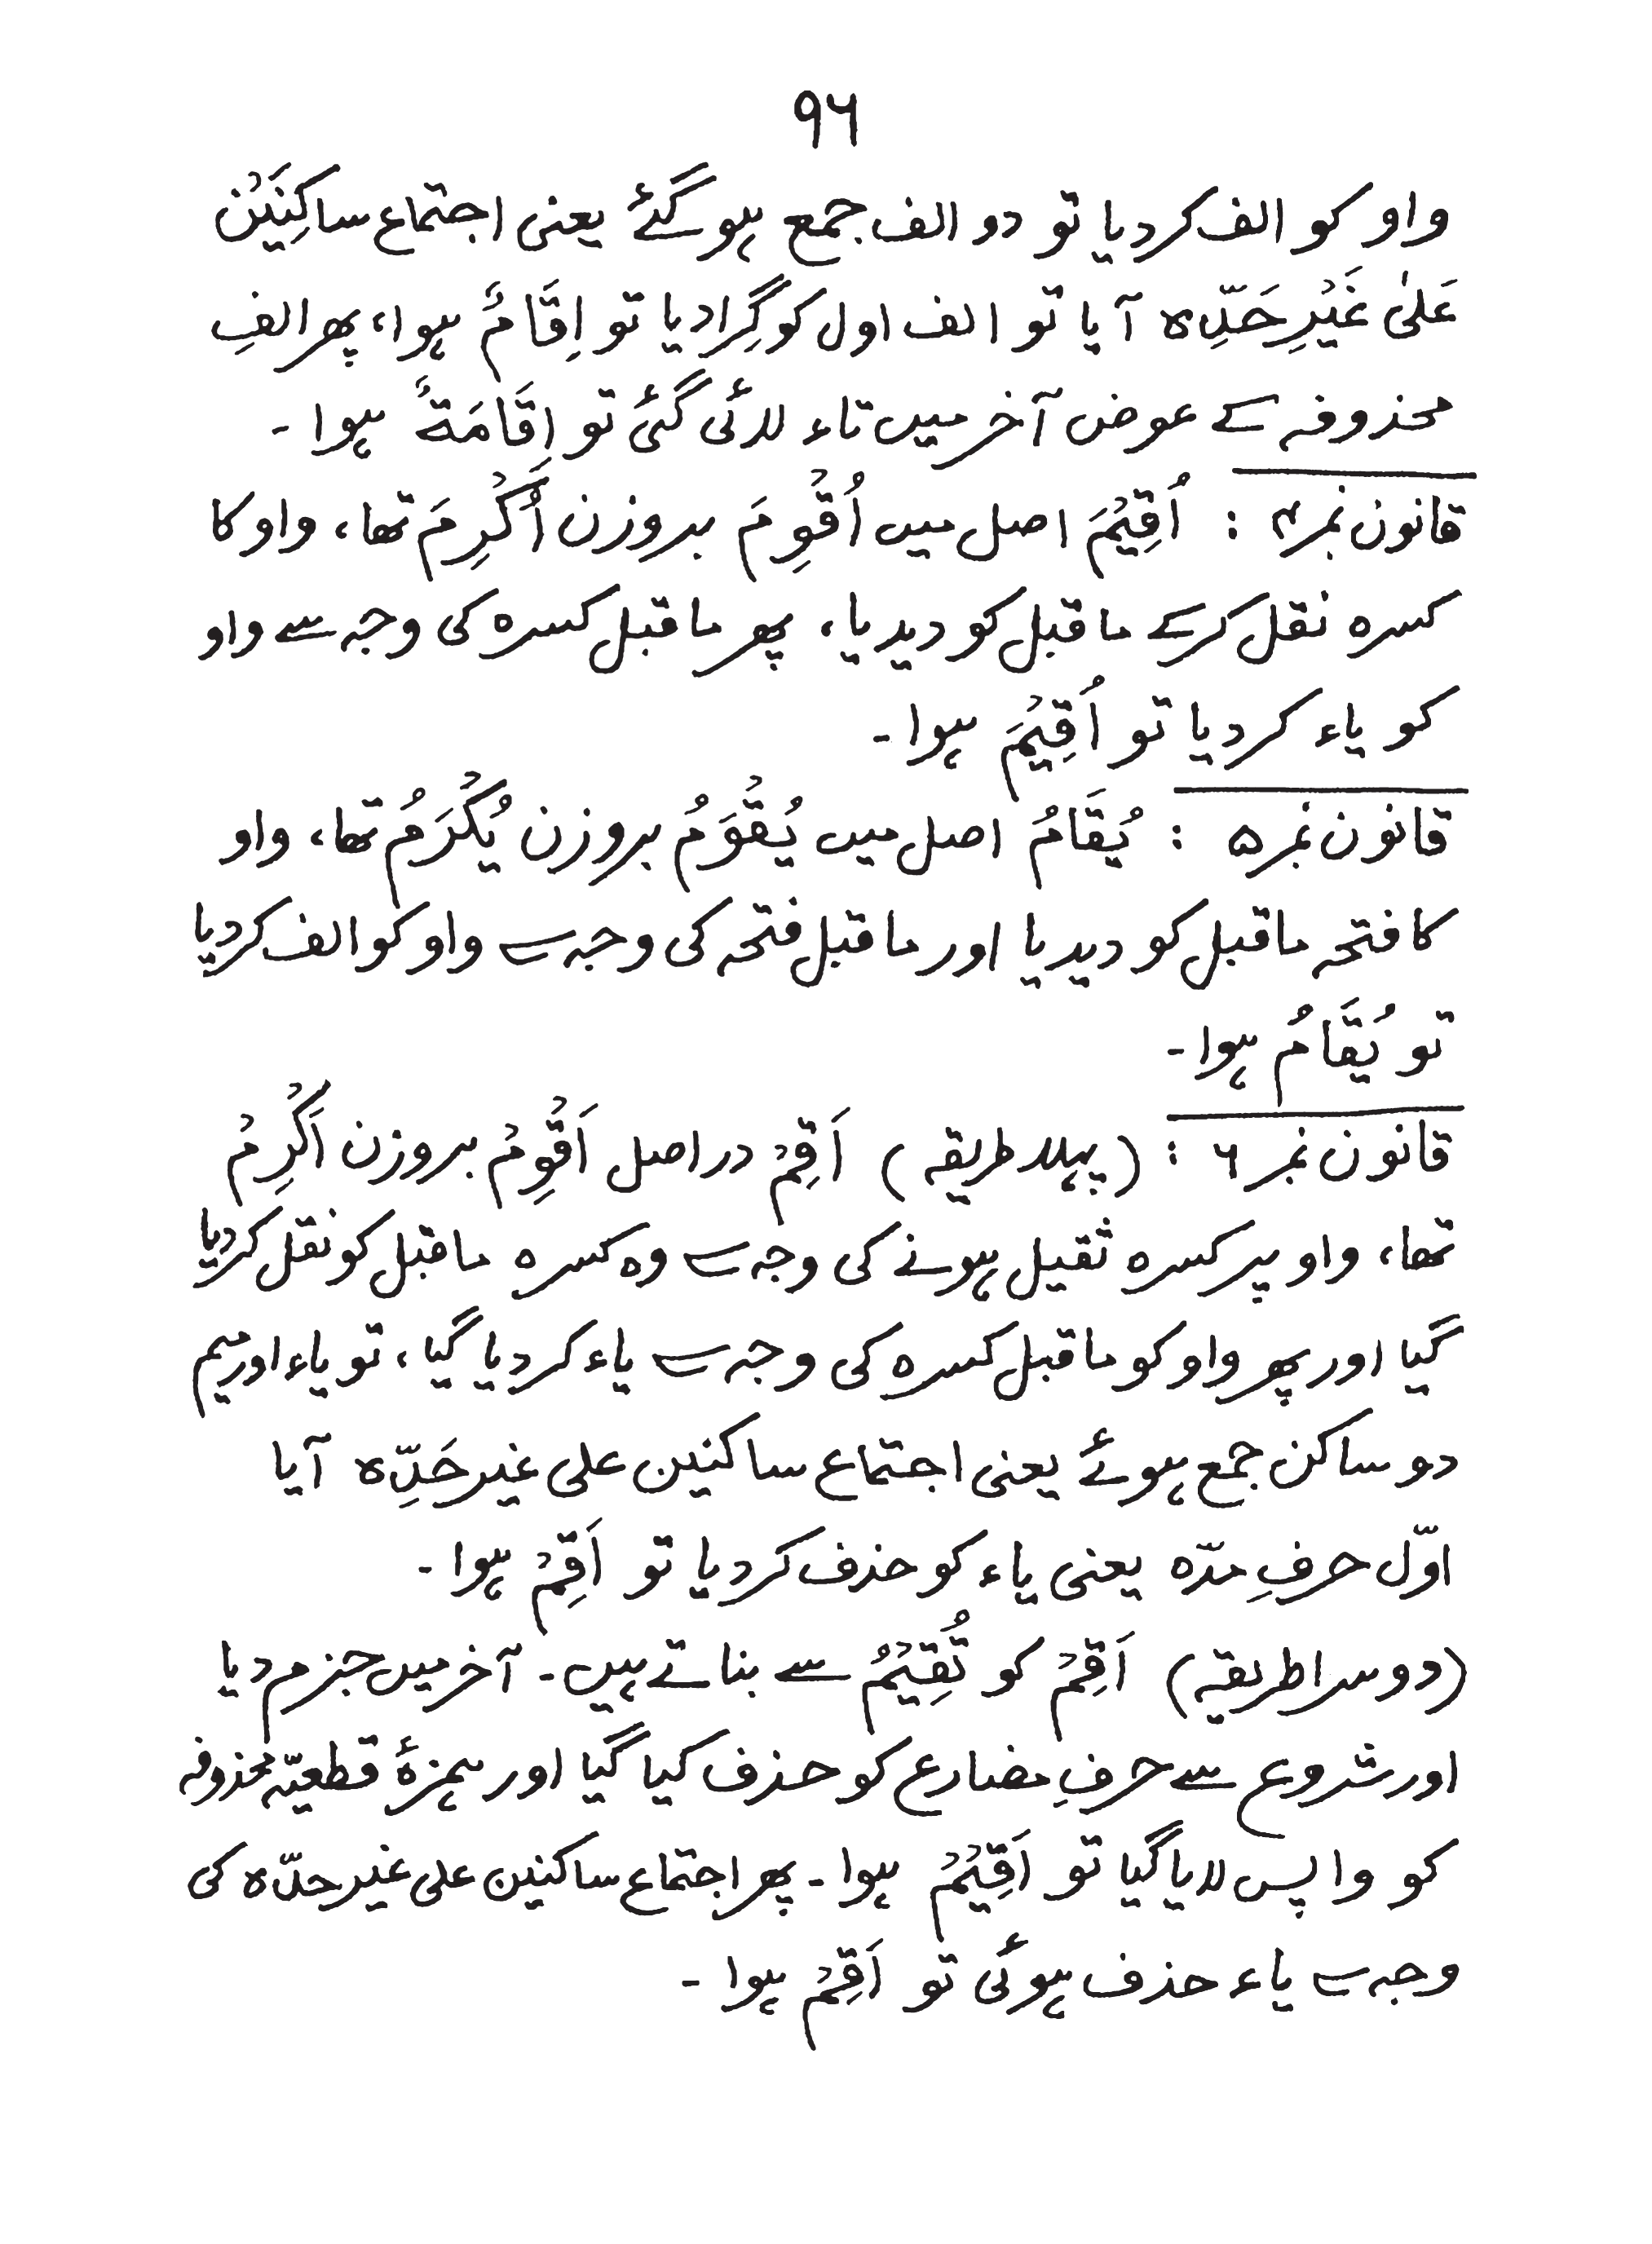 ۹۶
واو کو الف کردیا تو دو الف جمع ہوگئے یعنی اجتماع ساکِنَیْن
عَلیٰ غَیْرِ حَدِّہ آیا تو الف اول کو گِرا دیا تو اِقَامٌ ہوا، پھر الفِ
محذوفہ کے عوض آخر میں تاء لائی گئی تو اِقَامَةً ہوا ۔
قانون نمبر ۴ : اُقِیْمَ اصل میں اُقْوِمَ بروزن اُکْرِمَ تھا، واو کا
کسرہ نقل کرکے ماقبل کو دیدیا، پھر ماقبل کسرہ کی وجہ سے واو
کو یاء کردیا تو اُقِیْمَ ہوا ۔
قانون نمبر ۵ : یُقَامُ اصل میں یُقْوَمُ بروزن یُکْرَمُ تھا، واو
کا فتحہ ماقبل کو دیدیا اور ماقبل فتحہ کی وجہ سے واو کو الف کردیا
تو یُقَامُ ہوا ۔
قانون نمبر ۶ : (پہلا طریقہ) اَقِمْ دراصل اَقْوِمْ بروزن اَکْرِمْ
تھا، واو پر کسرہ ثقیل ہونے کی وجہ سے وہ کسرہ ماقبل کو نقل کردیا
گیا اور پھر واو کو ماقبل کسرہ کی وجہ سے یاء کردیا گیا، تو یاء اور میم
دو ساکن جمع ہوئے یعنی اجتماع ساکنین علی غیر حَدِّہ آیا
اوّل حرفِ مدّہ یعنی یاء کو حذف کردیا تو اَقِمْ ہوا ۔
(دوسرا طریقہ) اَقِمْ کو تُقِیْمُ سے بناتے ہیں ۔ آخر میں جزم دیا
اور شروع سے حرفِ مضارع کو حذف کیا گیا اور ہمزۂ قطعیّہ محذوفہ
کو واپس لایا گیا تو اَقِیْمْ ہوا ۔ پھر اجتماع ساکنین علی غیر حدّہ کی
وجہ سے یاء حذف ہوئی تو اَقِمْ ہوا ۔